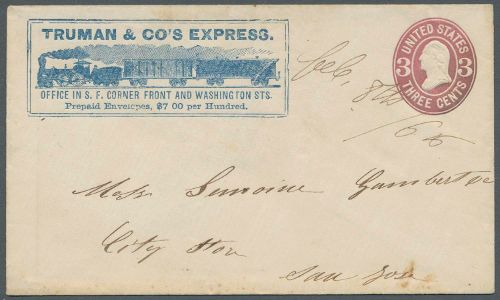 TRUMAN & CO'S EXPRESS.
OFFICE IN S. F. CORNER FRONT AND WASHINGTON STS.
Prepaid Envelopes, $7 00 per Hundred.
UNITED STATES
3 3
THREE CENTS
8th
Lemoine Gambert
City Stor
San Jose